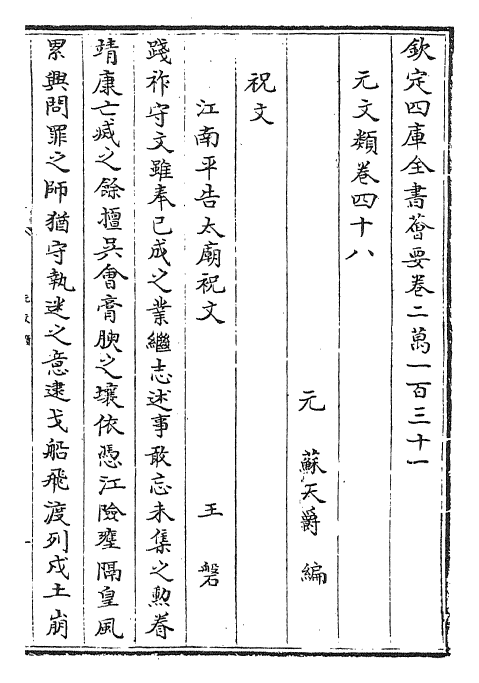 欽定四庫全書薈要卷二萬一百三十一
元文類卷四十八
元 蘇天爵 編
祝文
江南平告太廟祝文 王磐
踐祚守文雖奉已成之業繼志述事敢忘未集之勲眷
靖康亡滅之餘擅吳會膏腴之壤依憑江險壅隔皇風
累興問罪之師猶守執迷之意逮戈船飛渡列戍土崩